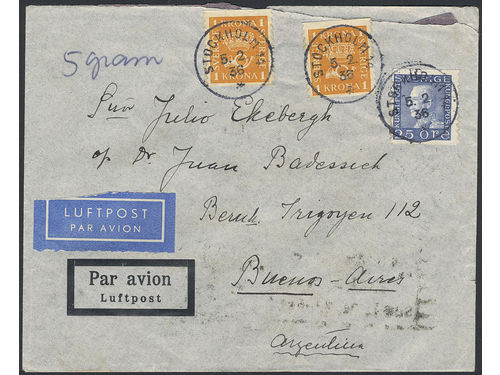 5 gram
1 KRONA 1
STOCKHOLM
5. 2.
36
1 KRONA 1
STOCKHOLM
5. 2.
36
SVERIGE
25 ÖRE
5. 2
36
Sñr Julio Ekebergh
Dr. Juan Badessich
Bern. Irigoyen 112
Buenos-Aires
Argentina
LUFTPOST
PAR AVION
Par avion
Luftpost